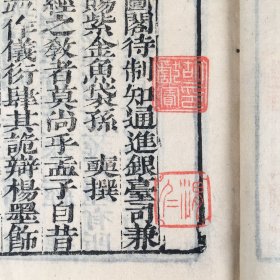 圖閣待制知通進銀臺司兼
賜紫金魚袋孫 奭撰
經之教者莫尚乎孟子自昔
作儀衍肆其詭辯楊墨飾